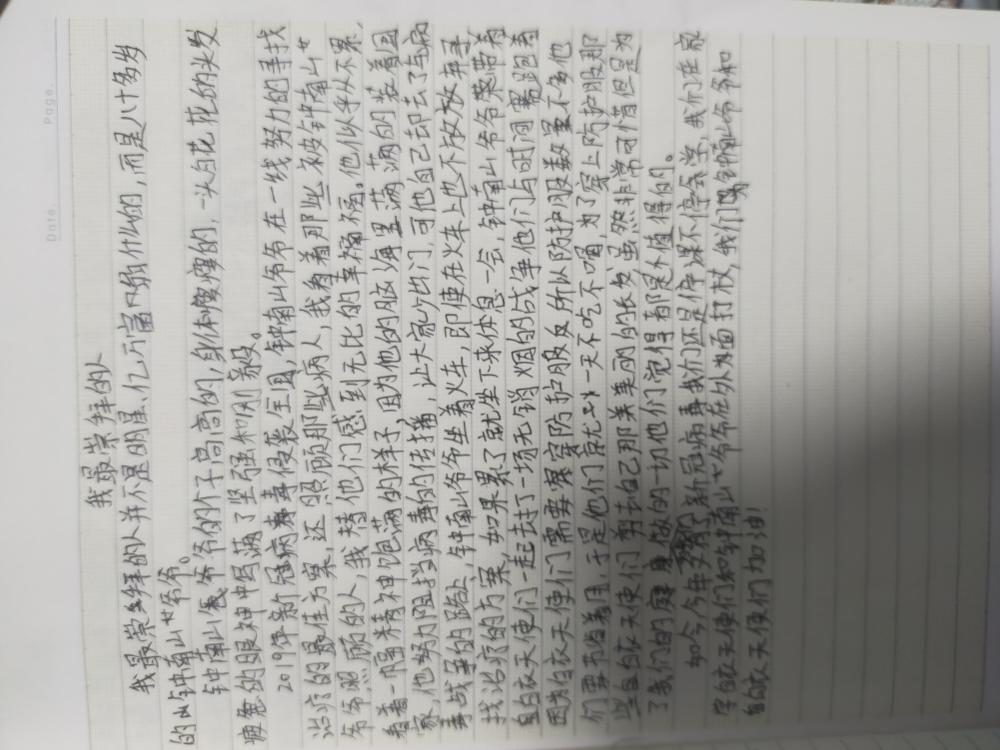 Date.
Page.
我最崇拜的人
我最崇拜的人并不是明星、亿万富翁什么的,而是八十多岁
的钟南山爷爷。
钟南山爷爷的个子高高的,身体瘦瘦的,一头白花花的头发
疲惫的眼神中写满了坚强和刚毅。
2019年新冠病毒侵袭全国,钟南山爷爷在一线努力的寻找
治疗的最佳方案,还照顾那些病人,我看着那些被钟南山
爷爷照顾的人,我替他们感到无比的幸福。他似乎从不累,
看着一幅精神饱满的样子,因为他的脑海里满满的装着国
家,他努力阻挡病毒的传播,让大家少出门,可他自己却去了与病
毒战争的路上,钟南山爷爷坐着火车,即使在火车上也不放弃寻
找治疗的方案,如果累了就坐下来休息一会,钟南山爷爷带着
白衣天使们一起去打了一场无销烟的战争他们与时间赛跑着
因为白衣天使们需要穿防护服及所以防护服数量不多他
们要节省着用于是他们就一天不吃不喝,为了穿上防护服那
些白衣天使们剪去自己那美丽的长发虽然非常可惜但是为
了我们的做的一切他们觉得都是值得的。
如今,今年又有了新冠病毒我们还是停课不停学,我们在家
学白衣天使们和钟南山爷爷在外面打仗,我们为钟南山爷爷和
白衣天使们加油!